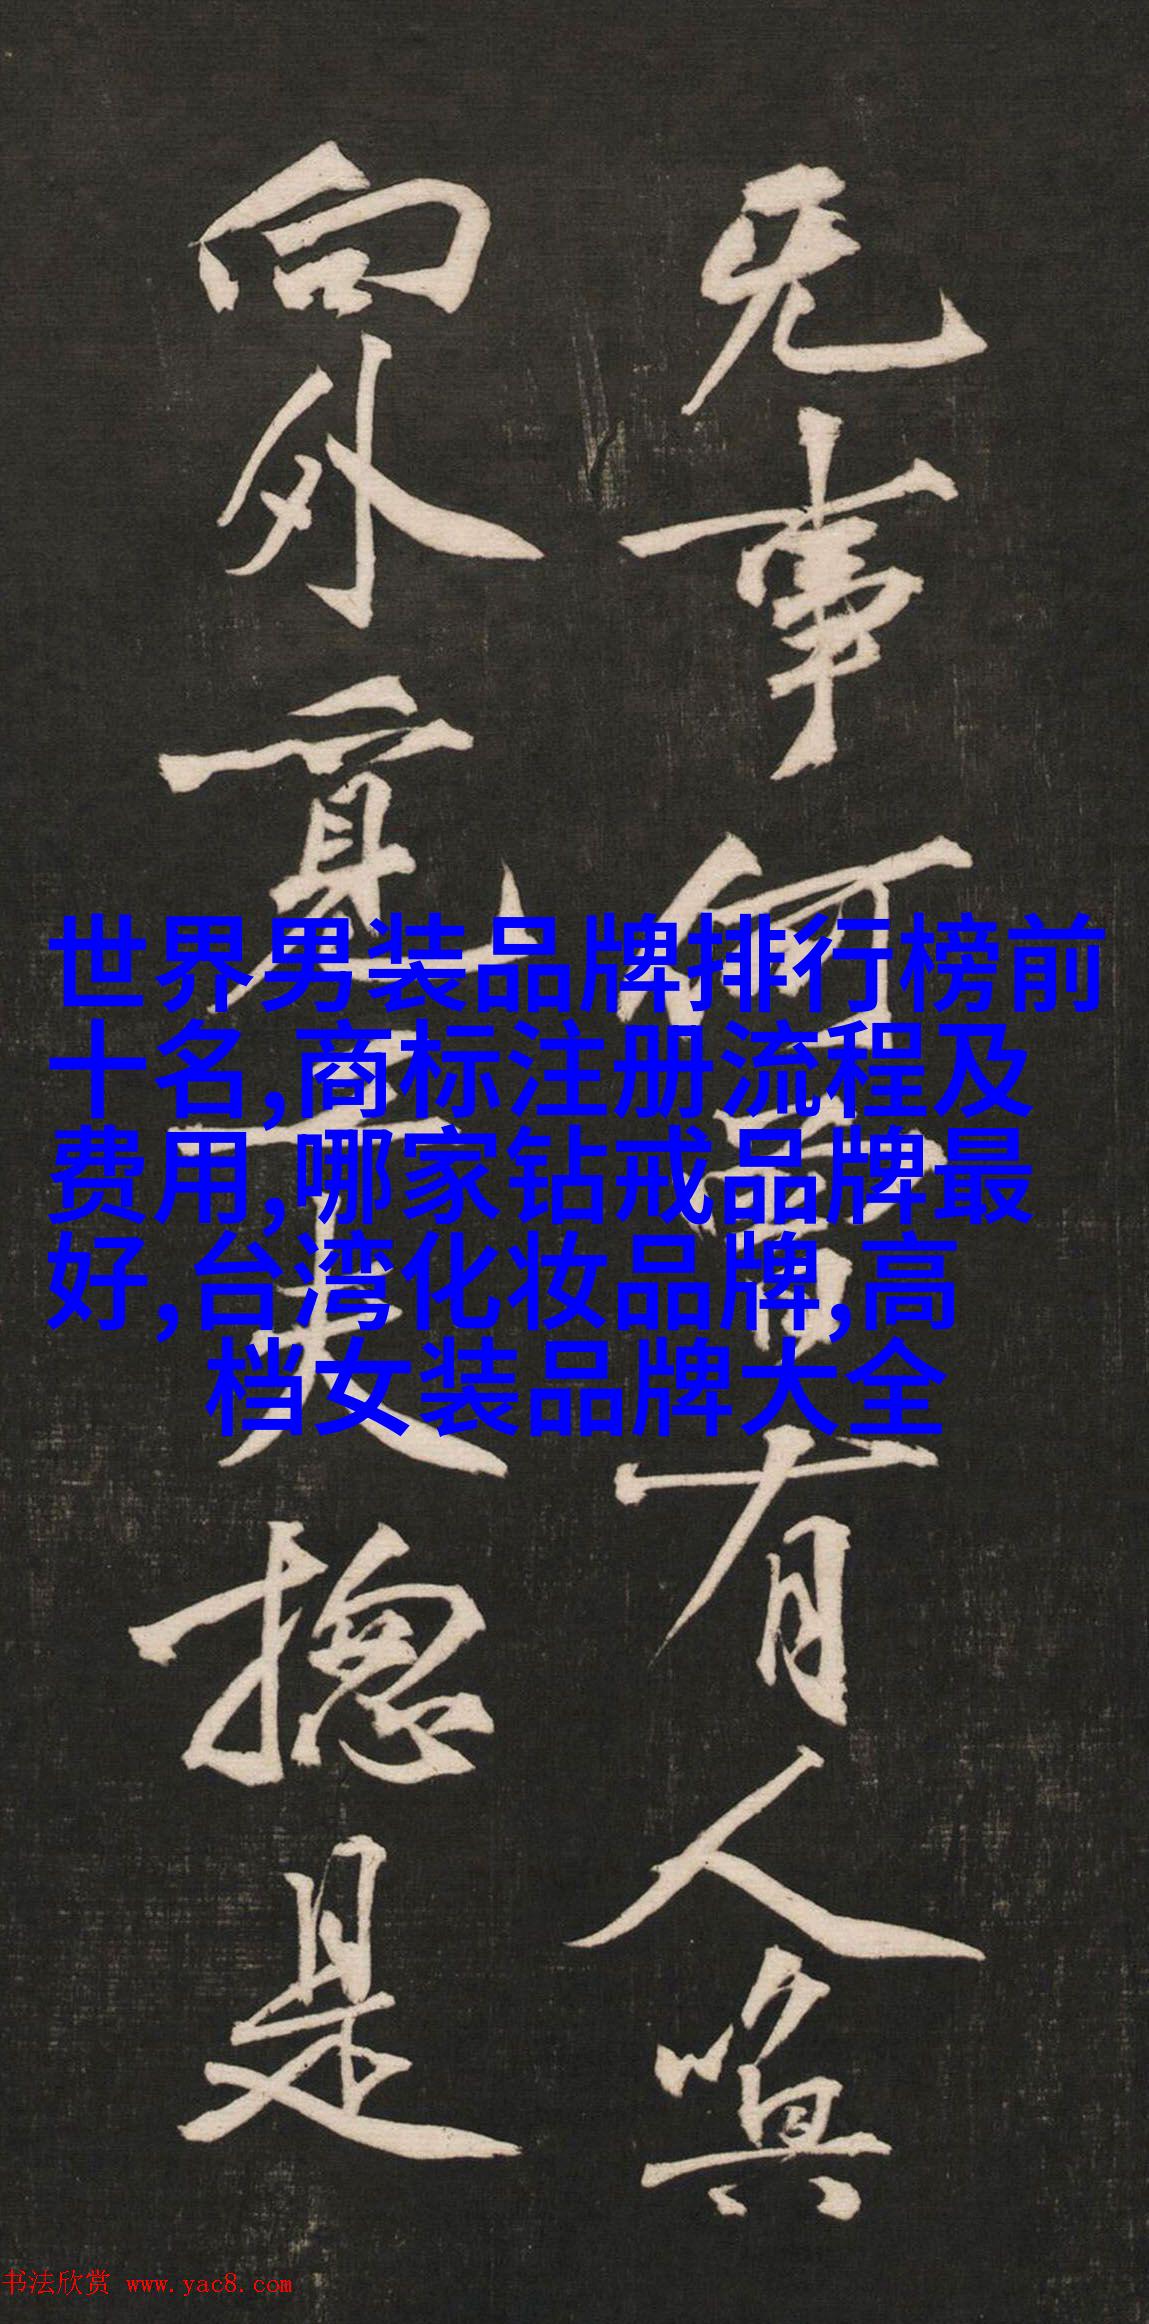 无事何曾有人喚
向外覓工夫揔是
世界男装品牌排行榜前
十名,商标注册流程及
费用,哪家钻戒品牌最
好,台湾化妆品牌,高
档女装品牌大全
书法欣赏 www.yac8.com